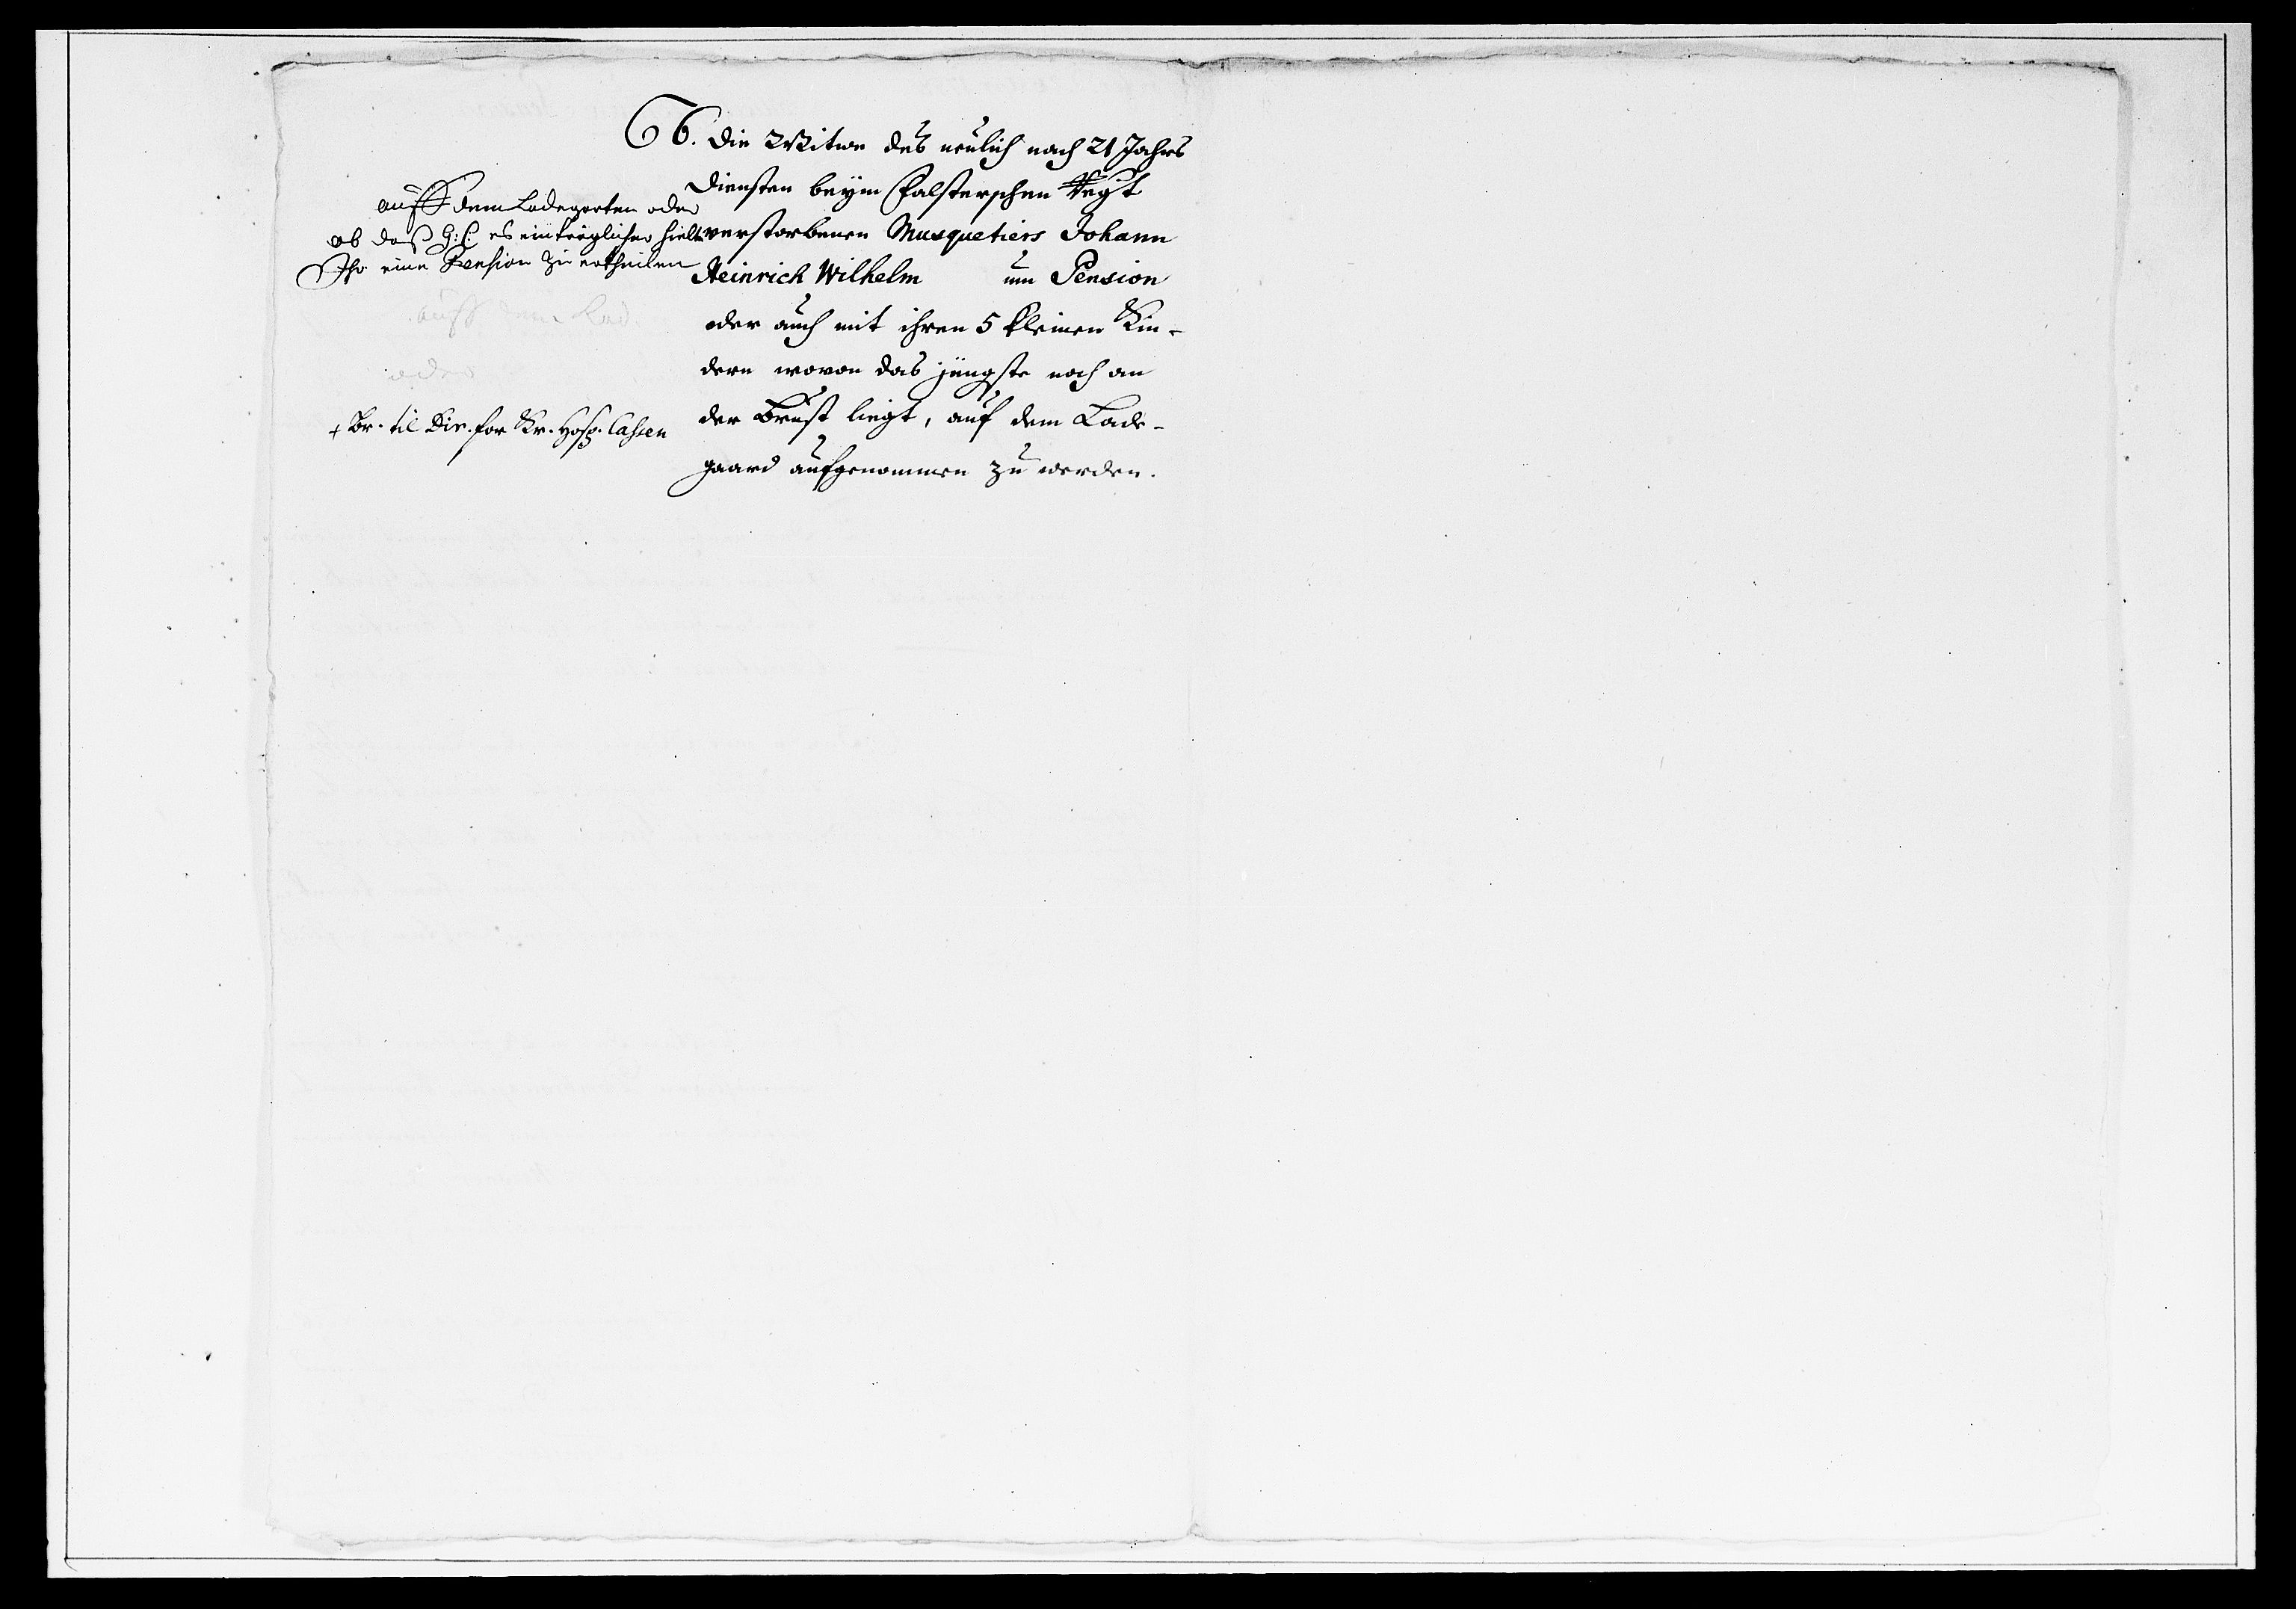 66. Die Witwe des neulich nach 21 Jahrs
Diensten beym Falsterschen Regt
verstorbenen Musquetiers Johann
Heinrich Wilhelm um Pension
oder auch mit ihren 5 kleinen Kin-
dern wovon das jüngste noch an
der Brust liegt, auf dem Lade-
gaard aufgenommen zu werden.
auff dem Ladegarten oder
ob das G: C: es einträglicher hielte
Ihr eine Pension zu ertheilen
auff dem Lad.
oder
+ Br. til Dir. for Kr. Hosp. Cassen